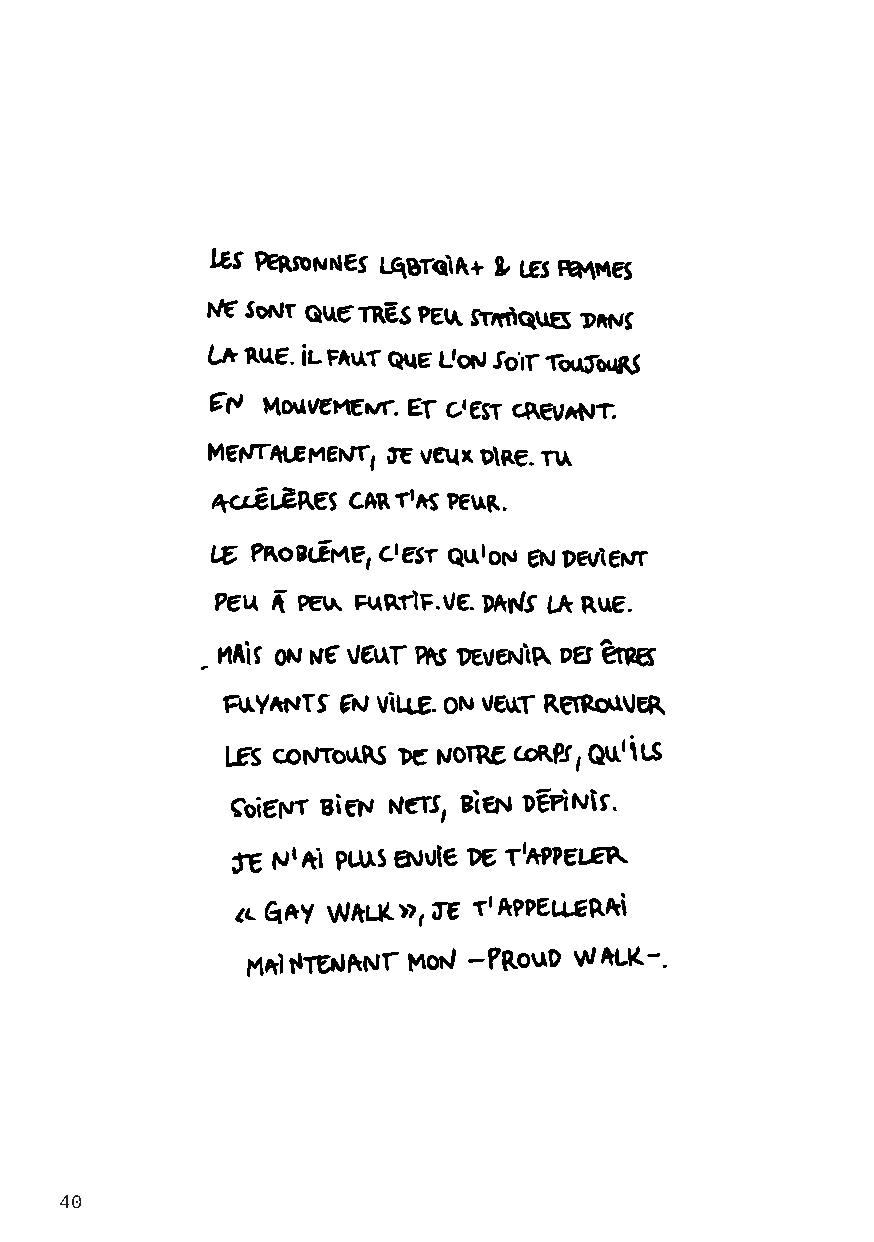 LES PERSONNES LGBTQIA+ & LES FEMMES
NE SONT QUE TRĒS PEU STATIQUES DANS
LA RUE. IL FAUT QUE L'ON SOIT TOUJOURS
EN MOUVEMENT. ET C'EST CREVANT.
MENTALEMENT, JE VEUX DIRE. TU
ACCĒLĒRES CAR T'AS PEUR.
LE PROBLĒME, C'EST QU'ON EN DEVIENT
PEU Ā PEU FURTIF.VE. DANS LA RUE.
MAIS ON NE VEUT PAS DEVENIR DES ÊTRES
FUYANTS EN VILLE. ON VEUT RETROUVER
LES CONTOURS DE NOTRE CORPS, QU'ILS
SOIENT BIEN NETS, BIEN DĒFINIS.
JE N'AI PLUS ENVIE DE T'APPELER
« GAY WALK », JE T'APPELLERAI
MAINTENANT MON –PROUD WALK–.
40